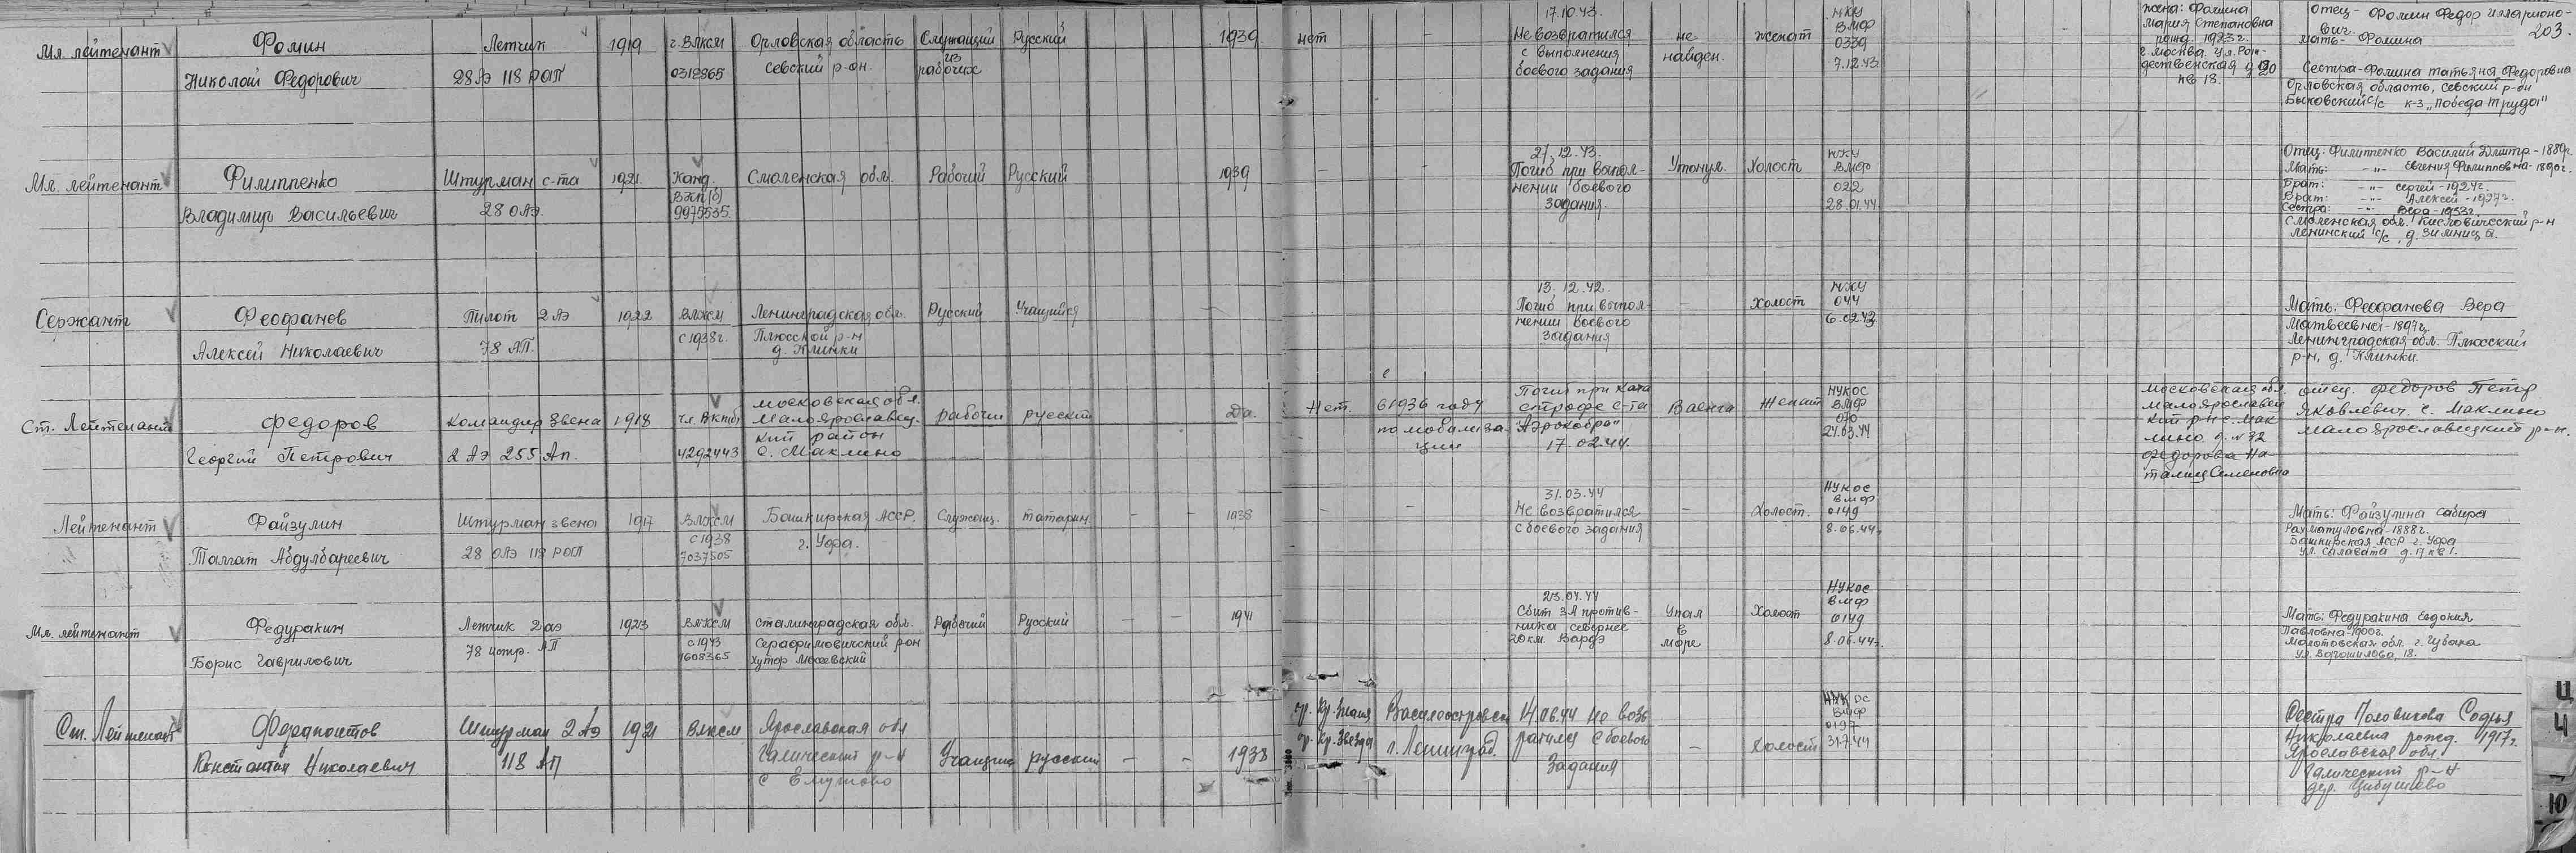 203.
Мл. лейтенант
Фомин
Николай Федорович
Летчик
28 АЭ 118 РАП
1919
г. ВЛКСМ
0312865
Орловская область
Севский р-он.
Служащий
из
рабочих
Русский
1939
нет
-
17.10.43.
Не возвратился
с выполнения
боевого задания
не
найден.
женат
НКУ
ВМФ
0339
7.12.43
жена: Фомина
Мария Степановна
рожд. 1923 г.
г. Москва, ул. Рож-
дественская д 20
кв 13.
Отец - Фомин Федор Илларионо-
вич.
мать - Фомина
Сестра - Фомина Татьяна Федоровна
Орловская область, Севский р-он
Быковский с/с к-з "Победа труда"
Мл. лейтенант
Филиппенко
Владимир Васильевич
Штурман с-та
28 ОАЭ.
1921.
Канд.
ВКП(б)
9975535
Смоленская обл.
Рабочий
Русский
1939
-
-
21.12.43.
Погиб при выпол-
нении боевого
задания.
Утонул.
Холост
НКУ
ВМФ
022
28.01.44
Отец: Филиппенко Василий Дмитр - 1889г.
Мать: -"- Евгения Филипповна - 1890г.
Брат: -"- Сергей - 1924г.
Брат: -"- Алексей - 1927г.
Сестра: -"- Вера - 1933г.
Смоленская обл. Хиславичский р-н
Ленинский с/с, д. Зимница.
Сержант
Феофанов
Алексей Николаевич
Пилот 2 АЭ
78 АП.
1922
ВЛКСМ
с 1938г.
Ленинградская обл.
Плюсской р-н
д. Клинки
Русский
Учащийся
-
13.12.42.
Погиб при выпол-
нении боевого
задания
-
Холост
НКУ
044
6.02.43
Мать: Феофанова Вера
Матвеевна - 1897г.
Ленинградская обл. Плюсский
р-н, д. Клинки.
Ст. Лейтенант
Федоров
Георгий Петрович
Командир звена
2 АЭ 255 Ап.
1918
чл. ВКП(б)
4292443
московская обл.
Малоярославец-
кий район
с. Маклино
рабочий
русский
Да.
Нет.
с
в 1936 году
по мобилиза
ции
Погиб при ката
строфе с-та
"Аэрокобра"
17.02.44.
Ваенга
Женат
НУКОС
ВМФ
070
21.03.44
московская обл.
малоярославец
кий р-н с. Мак-
лино д. №72
Федорова На-
талия Семеновна
отец. Федоров Петр
Яковлевич. с. Маклино
малоярославецкий р-н.
Лейтенант
Файзулин
Талгат Абдулбареевич
Штурман звена
28 ОАЭ 118 РАП
1917
ВЛКСМ
с 1938
7037505
Башкирская АССР.
г. Уфа.
Служащ.
татарин
-
-
1938
-
-
31.03.44
Не возвратился
с боевого задания
-
Холост.
НУКОС
ВМФ
0149
8.06.44.
Мать: Файзулина Сабира
Рахматуловна - 1888г.
Башкирская АССР г. Уфа
ул. Салавата д. 17 кв 1.
Мл. лейтенант
Федуракин
Борис Гаврилович
Летчик 2 аэ
78 истр. АП
1923
ВЛКСМ
с 1943
1608365
Сталинградская обл.
Серафимовичский р-он
Хутор
Рабочий
Русский
-
-
1941
23.04.44
Сбит ЗА против-
ника севернее
20 км. Вардэ
Упал
в
море
Холост
НУКОС
ВМФ
0149
8.06.44г.
Мать: Федуракина Евдокия
Павловна - 1900г.
Молотовская обл. г. Губаха
ул. Ворошилова, 18.
Ст. Лейтенант
Ферапонтов
Константин Николаевич
Штурман 2 АЭ
118 АП
1921
ВЛКСМ
Ярославская обл
Галический р-н
с
Учащийся
русский
-
-
1938
ор. Кр. Знамя
ор. Кр. Звезда
Василеостровски
г. Ленинград.
14.06.44 Не возв
ратился с боевого
Задания
-
Холост
НУКОС
ВМФ
0197
31.7.44
Сестра Половикова Софья
Николаевна рожд. 1917г.
Ярославская обл.
Галический р-н
дер. Цибушево
Ц
Ч
Ю